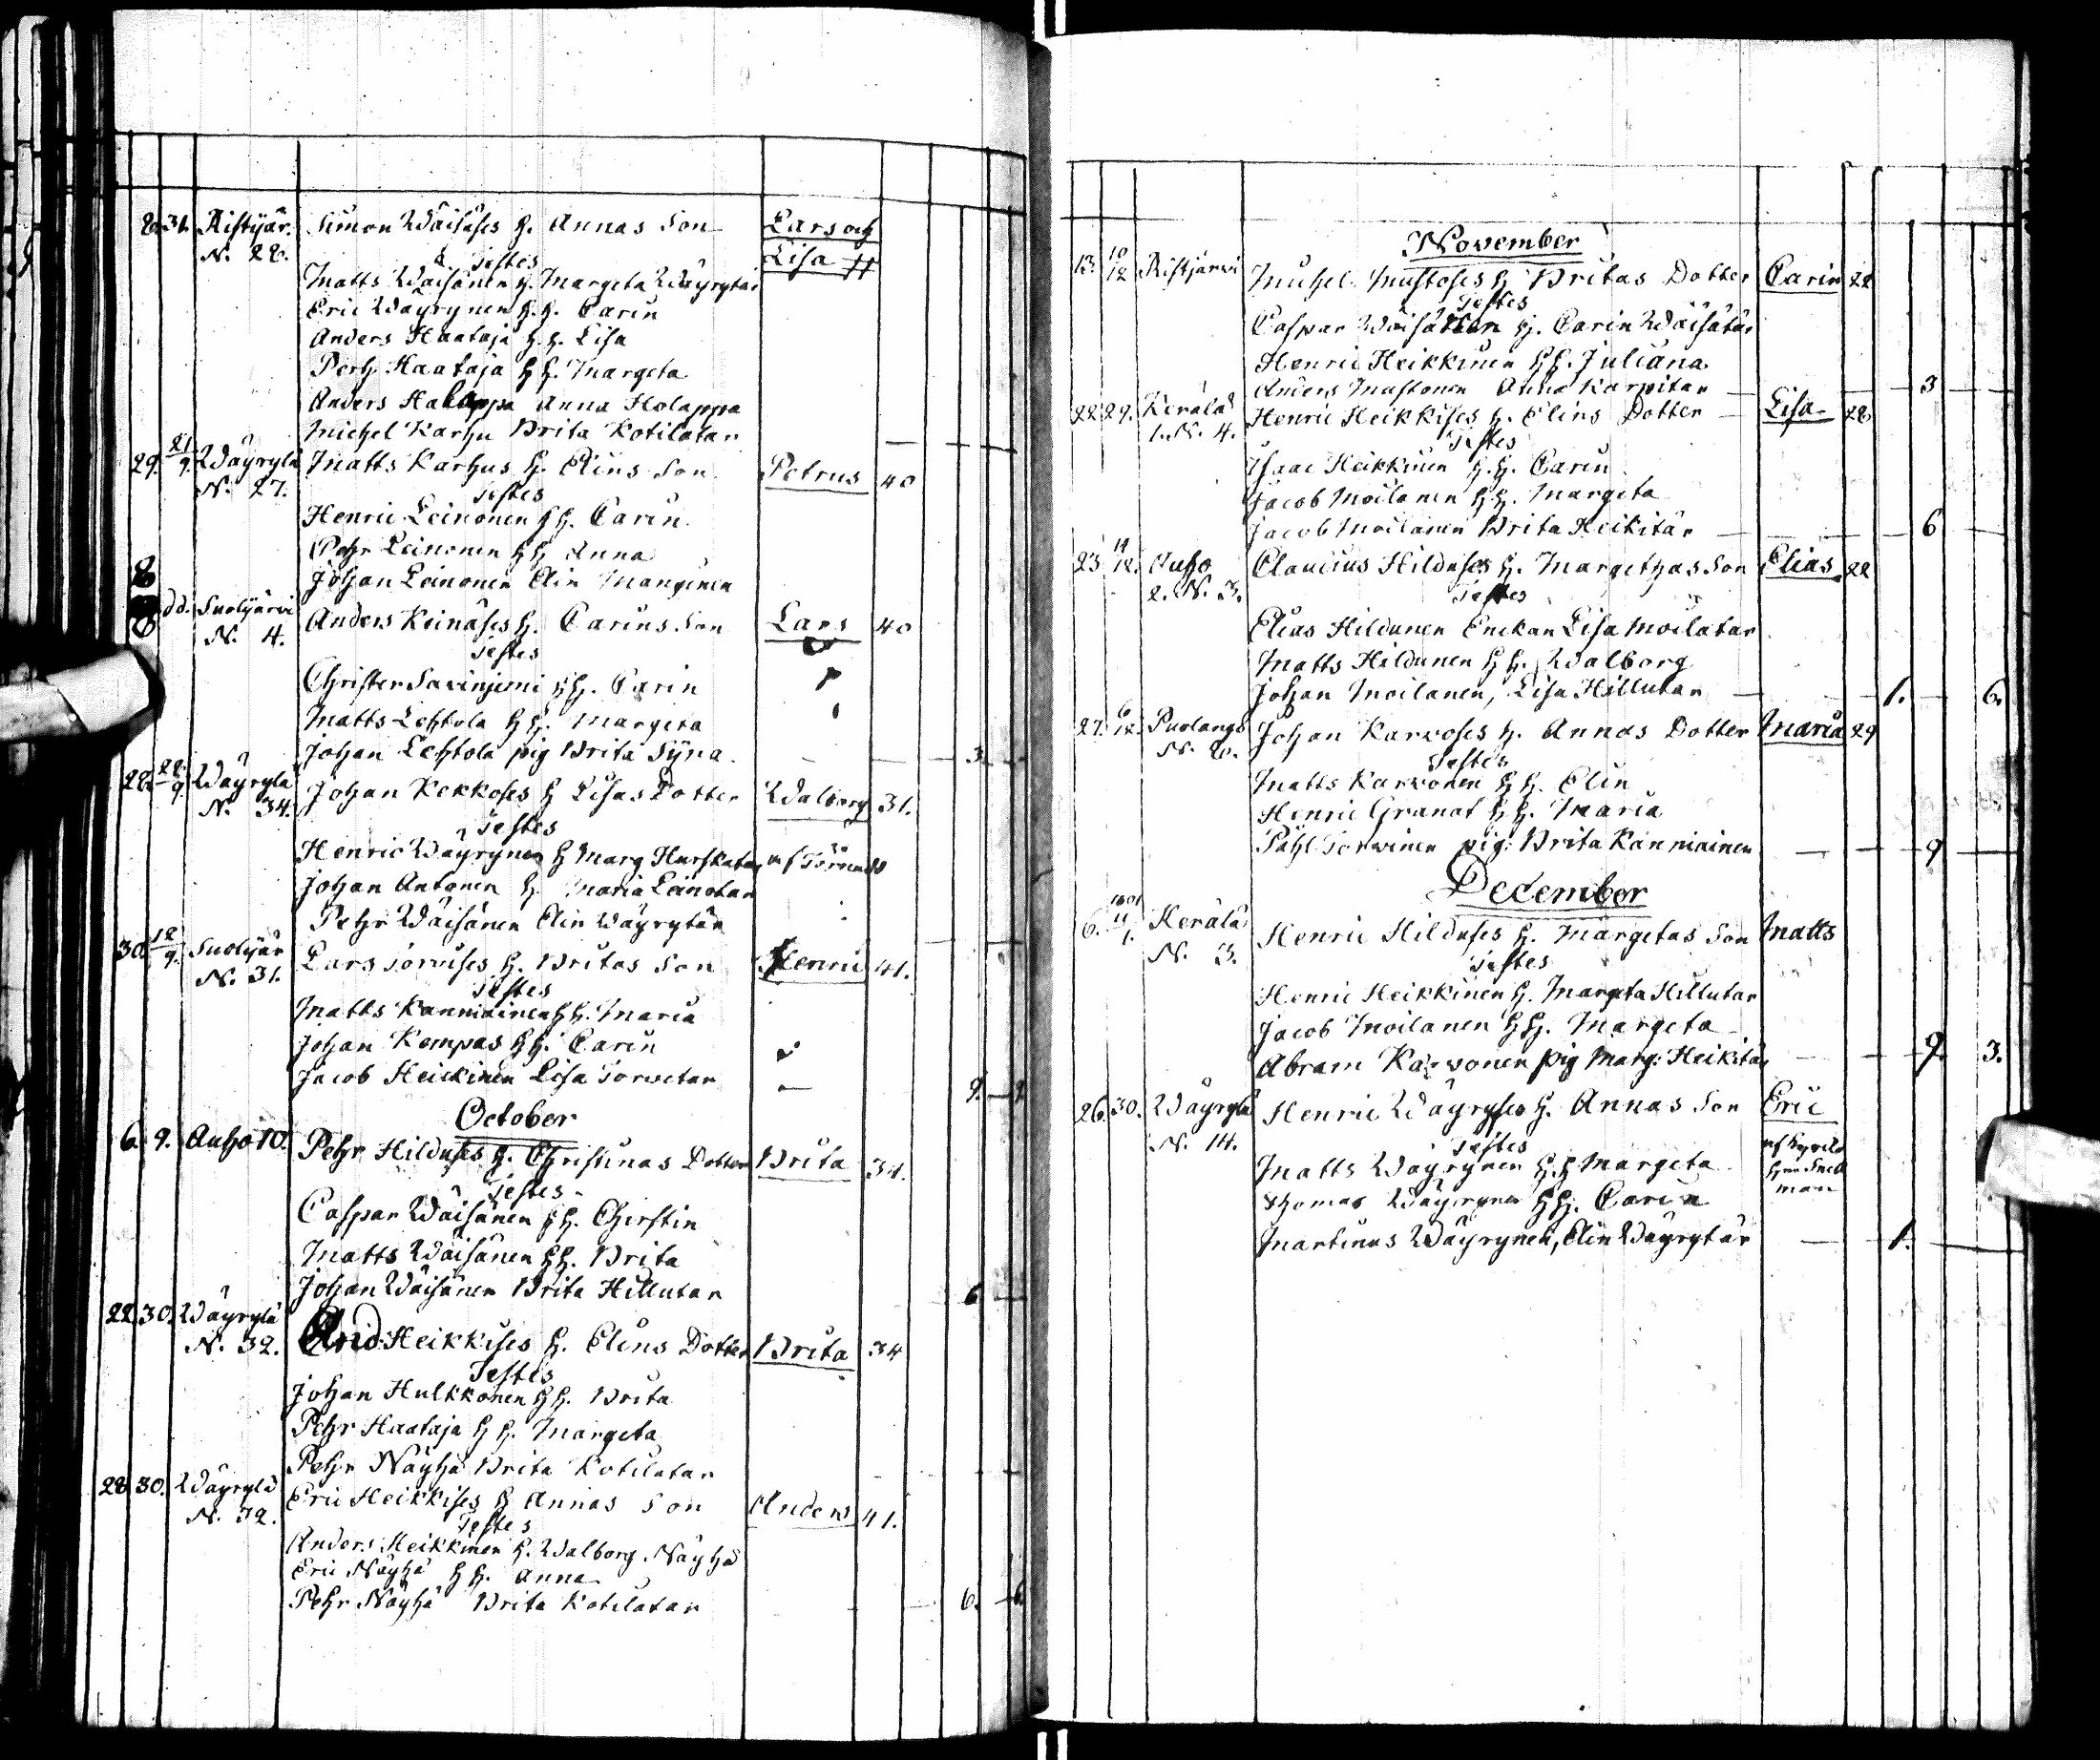 31. Ristijär. Simon Wäisäses h. Annas Son Lars och
N. 28. Testes Lisa
Matts Wäisänen h. Margeta Wäyrytär
Eric Wäyrynen h.h. Carin
Anders Haataja h.h. Lisa
Pehr Haataja h h. Margeta
Anders Holappa Anna Holappa
Michel Karhu Brita Kotilatar
29. 21/9. Wäyrylä Matts Karhus h. Elins Son Petrus 40
N. 27. Testes
Henric Leinonen h h. Carin
Pehr Leinonen h h Anna
Johan Leinonen Elin Manginen
dd. Suolijärvi Anders Keinäses h. Carins Son Lars 40
N. 4. Testes
Christer Savinjemi h h. Carin
Matts Lehtola h h. Margeta
Johan Lehtola pig Brita Syna 3
28. 22/9 Wäyrylä Johan Kekkoses h Lisas Dotter Walborg 31.
N. 34. Testes
Henric Wäyrynen h Marg Hurskatar
Johan Antonen h. Maria Leinotar
Pehr Wäisänen Elin Wäyrytär
30. 12/9. Suolijär Lars Torvises h. Britas Son Henric 41.
N. 31. Testes
Matts Kanniainen h h. Maria
Johan Kempas h h. Carin
Jacob Heickinen Lisa Torvetar 9. 9
October
6. 9. Auho 10. Pehr Hilduses h. Christinas Dotter Brita 34.
Testes
Caspar Wäisänen h h. Cherstin
Matts Wäisänen h h. Brita
Johan Wäisänen Brita Hillutar 6
22. 30. Wäyrylä
N. 32. Arid Heikkises h. Elins Dotter Brita 34
Testes
Johan Hulkkonen h h. Brita
Pehr Haataja h h. Margeta
Pehr Näyhä Brita Kotilatar
28 30. Wäyrylä Eric Heikkises h Annas Son Anders 41.
N. 32. Testes
Anders Heikkinen h. Walborg Näyhä
Eric Näyhä h h. Anna
Pehr Näyhä Brita Kotilatar 6. 6
November
13. 10/12 Ristjärvi Michel Mustoses h Britas Dotter Carin 28
Testes
Caspar Wäisänen h. Carin Wäisätär
Henric Heikkinen h h. Juliana
Anders Mustonen Anna Karpitar 3
22 29. Kerälä Henric Heikkises h. Elins Dotter Lisa 28
1. N. 4. Testes
Isaac Heikkinen h. h. Carin
Jacob Moilanen h h. Margeta
Jacob Moilanen Brita Heikitär 6
23 14/12. Auho Claudius Hilduses h. Margethas Son Elias 22
2. N. 3. Testes
Elias Hildunen Enckan Lisa Moilatar
Matts Hildunen h h. Walborg
Johan Moilanen, Lisa Hillutar 1. 6.
27. 6/12. Puolango Johan Karvoses h. Annas Dotter Maria 29
N. 20. Testes
Matts Karvonen h h. Elin
Henric Granat h h. Maria
Påhl Torvinen pig: Brita Kanniainen 9
December
6. 1801 11/1. Kerälä Henric Hilduses h. Margetas Son Matts
N. 3. Testes
Henric Heikkinen h. Margeta Hillutar
Jacob Moilanen h h. Margeta
Abram Karvonen pig Marg: Heikitär 9. 3.
26. 30. Wäyrylä Henric Wäyryses h. Annas Son Eric
N. 14. Testes
Matts Wäyrynen h. h Margeta
Thomas Wäyrynen h h. Carin
Martinus Wäyrynen, Elin Wäyrytär 1.